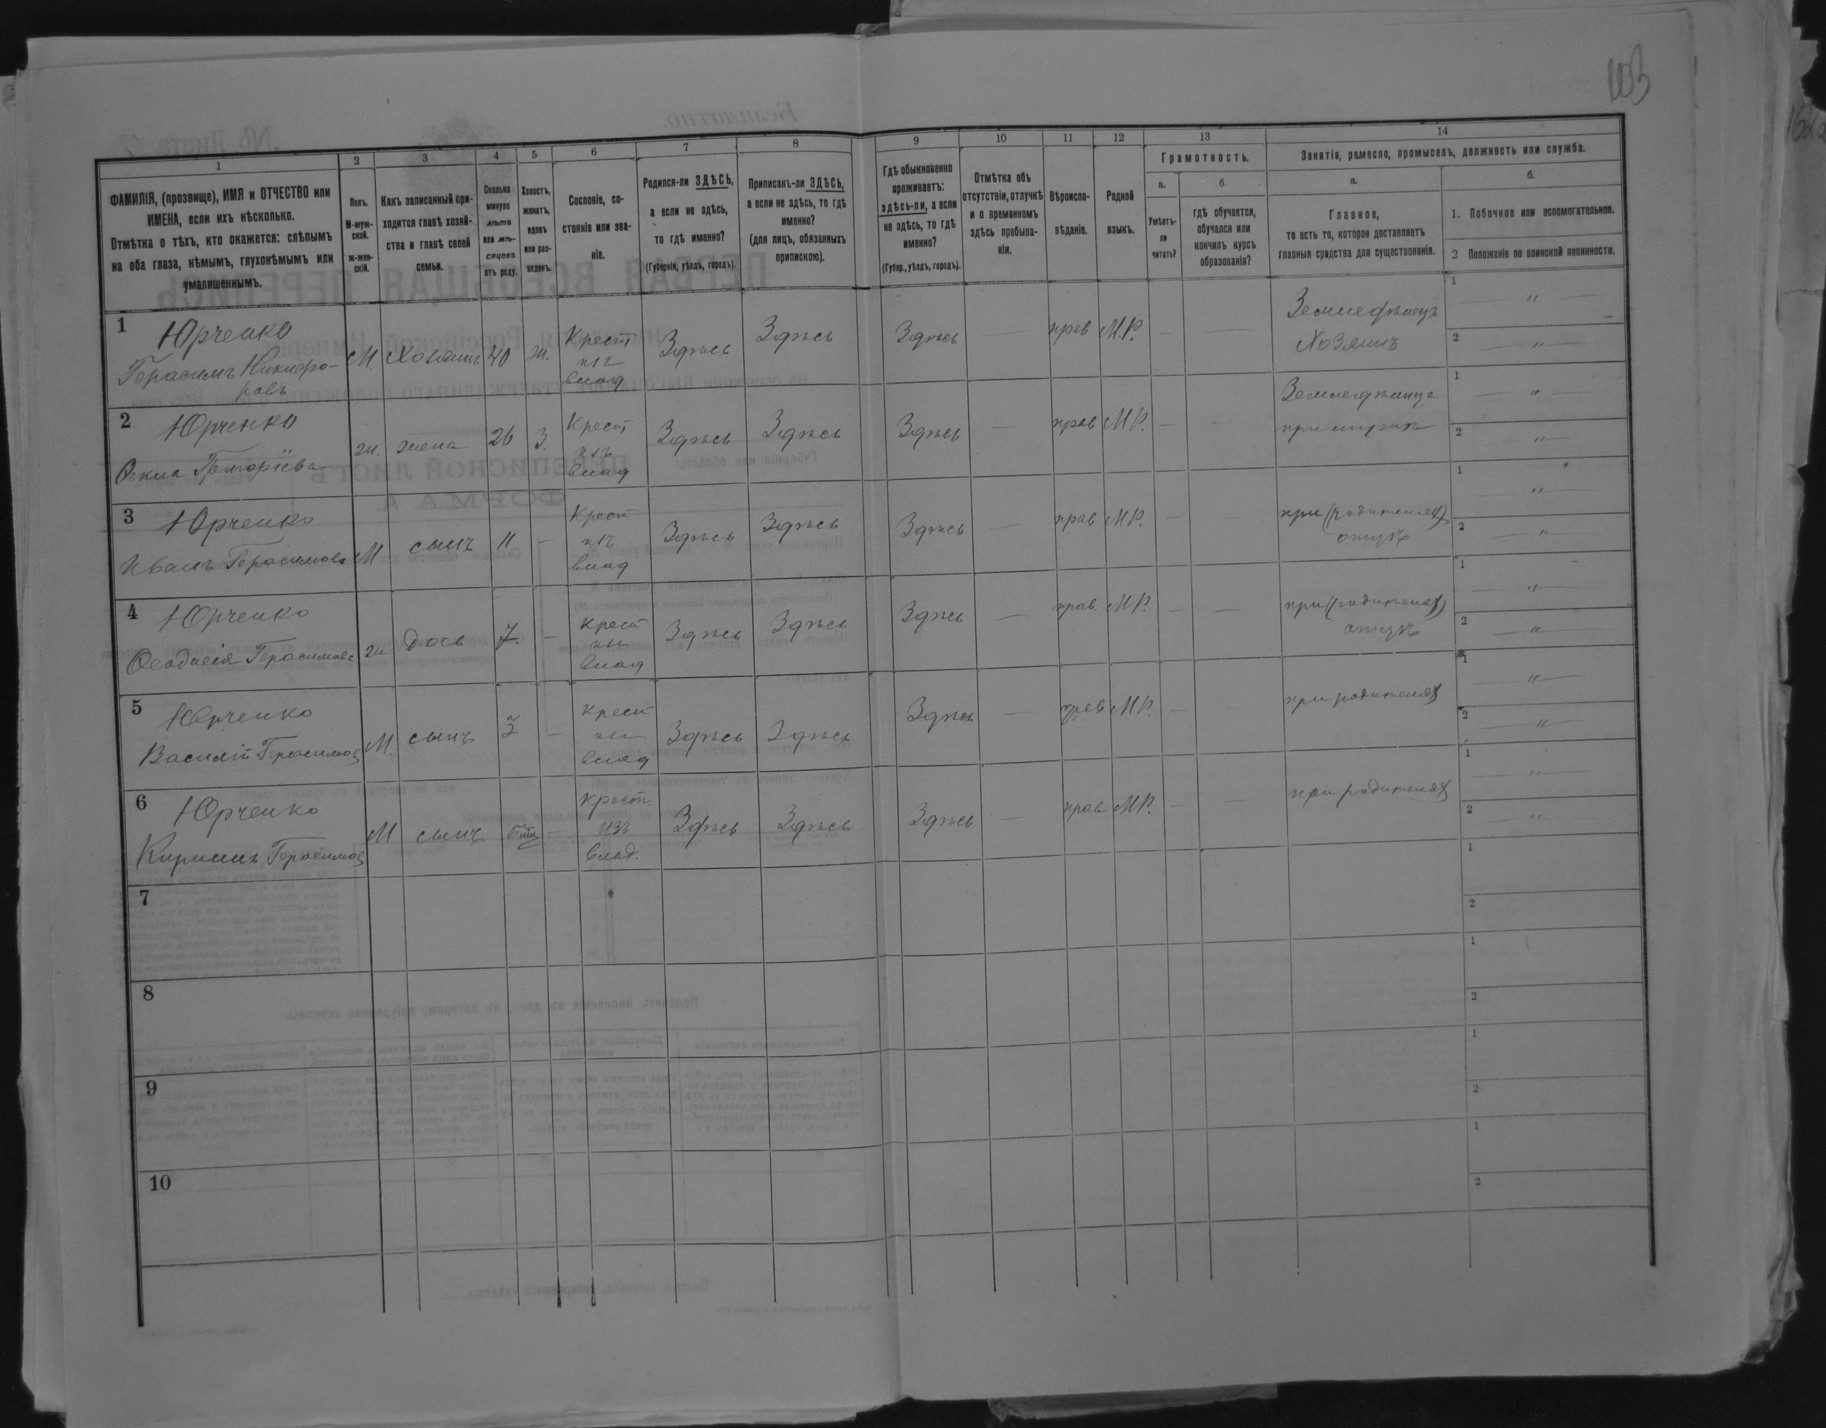 103
1 2 3 4 5 6 7 8 9 10 11 12 13 14
ФАМИЛІЯ, (прозвище), ИМЯ и ОТЧЕСТВО или
ИМЕНА, если ихъ нѣсколько.
Отмѣтка о тѣхъ, кто окажется: слѣпымъ
на оба глаза, нѣмымъ, глухонѣмымъ или
умалишеннымъ.
Полъ.
М-муж-
ской.
ж-жен-
скій.
Какъ записанный при-
ходится главѣ хозяй-
ства и главѣ своей
семьи.
Сколько
минуло
лѣтъ
или мѣ-
сяцевъ
отъ роду.
Холостъ,
женатъ,
вдовъ
или раз-
веденъ.
Сословіе, со-
стояніе или зва-
ніе.
Родился-ли ЗДѢСЬ,
а если не здѣсь,
то гдѣ именно?
(Губернія, уѣздъ, городъ).
Приписанъ-ли ЗДѢСЬ,
а если не здѣсь, то гдѣ
именно?
(для лицъ, обязанныхъ
припискою).
Гдѣ обыкновенно
проживаетъ:
здѣсь-ли, а если
не здѣсь, то гдѣ
именно?
(Губер., уѣздъ, городъ).
Отмѣтка объ
отсутствіи, отлучкѣ
и о временномъ
здѣсь пребыва-
ніи.
Вѣроиспо-
вѣданіе.
Родной
языкъ.
Грамотность.
а.
Умѣетъ-
ли
читать?
б
гдѣ обучается,
обучался или
кончилъ курсъ
образованія?
Занятіе, ремесло, промыселъ, должность или служба.
а.
Главное,
то есть то, которое доставляетъ
главныя средства для существованія.
б.
1. Побочное или вспомогательное.
2 Положеніе по воинской повинности.
1 Юрченко
Герасимъ Никифо-
ровъ
М. Хозяинъ 40 ж. Крест
изъ
влад
Здѣсь Здѣсь Здѣсь — прав М.Р. — —
Земледѣлецъ
Хозяинъ
1 — " —
2 — " —
2 Юрченко
Григоріева
ж. жена 26 З. Крест
изъ
влад
Здѣсь Здѣсь Здѣсь — прав М.Р. — —
Земледѣлица
при мужѣ
1 — " —
2 — " —
3 Юрченко
Иванъ Герасимовъ
М сынъ 11 — Крест
изъ
влад
Здѣсь Здѣсь Здѣсь — прав М.Р. — —
при (родителях)
отцѣ
1 — " —
2 — " —
4 Юрченко
Феодосія Герасимова
ж дочь 7 — Крест
изъ
влад
Здѣсь Здѣсь Здѣсь — прав. М.Р. — —
при (родителях)
отцѣ
1 — " —
2 — " —
5 Юрченко
Василій Герасимов
М. сынъ 3 — Крест
изъ
влад
Здѣсь Здѣсь Здѣсь — прав М.Р. — —
при родителях
1 — " —
2 — " —
6 Юрченко
Кириллъ Герасимов
М сынъ — Крест.
изъ
влад.
Здѣсь Здѣсь Здѣсь — прав М.Р. — —
при родителях
1 — " —
2 — " —
7
1
2
8
1
2
9
1
2
10
1
2